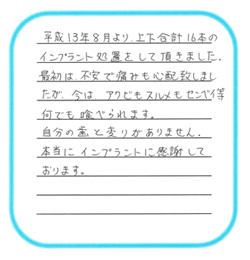 平成13年8月より、上下合計16本の
インプラント処置をして頂きました。
最初は、不安で痛みも心配致しまし
たが、今は、アワビもスルメもセンベイ等
何でも喰べられます。
自分の歯と変りがありません。
本当にインプラントに感謝して
おります。